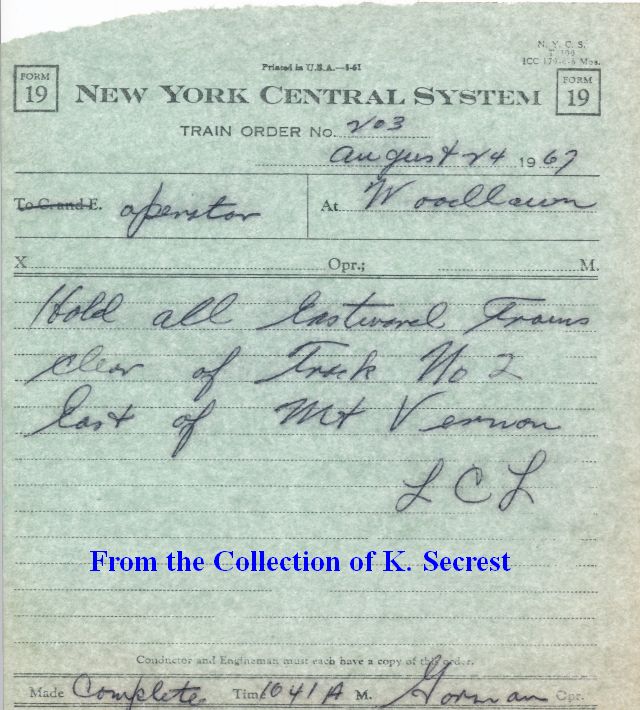 N. Y. C. S.
ICC 179-6-6 Mos.
Printed in U.S.A.—8-61
FORM 19
NEW YORK CENTRAL SYSTEM
FORM 19
TRAIN ORDER No. 203
August 24 1967
To C. and E. operator At Woodlawn
X Opr.; M.
Hold all Eastward Trains
clear of Track No 2
East of Mt Vernon
L C L
From the Collection of K. Secrest
Conductor and Engineman must each have a copy of this order.
Made Complete Tim 1041 A M. Gorman Opr.